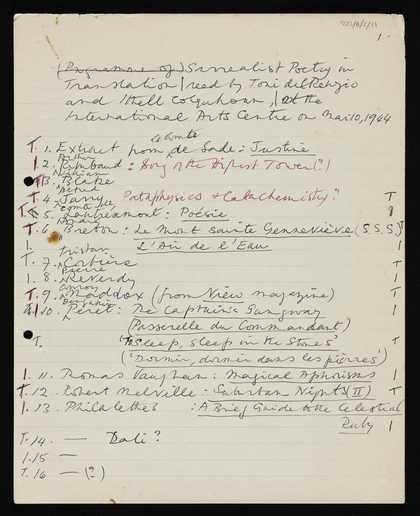 1.
(Programme of) Surrealist Poetry in
Translation read by Toni del Renzio
and Ithell Colquhoun, at the
International Arts Centre on Mar 10, 1944
le Comte
T. 1. Extract from de Sade: Justine
Arthur
1. 2. Rimbaud: Song of the Highest Tower(?)
William
T 3. Blake
Alfred
T 4. Jarry Pataphysics & Catachemistry? T
Comte de
5. Lautréamont: Poésie 1
André
T. 6. Breton: Le Mont Sainte Geneviève (S.S.S) T
1. L'Air de l'Eau 1
Tristan
T. 7. Corbière T
Pierre
1. 8. Reverdy 1
Conroy
T. 9. Maddox (from View magazine) T
Benjamin
10. Péret: The Captain's Gangway 1
(Passerelle du Commandant)
T. 'Asleep, sleep in the Stones' T
('Dormir, dormir dans les pierres')
1. 11. Thomas Vaughan: Magical Aphorisms 1
T. 12. Robert Melville: Suburban Nights (II) T
1. 13. Philalethes : A Brief Guide to the Celestial
Ruby 1
T. 14. — Dali?
1. 15 —
T. 16 — (?)